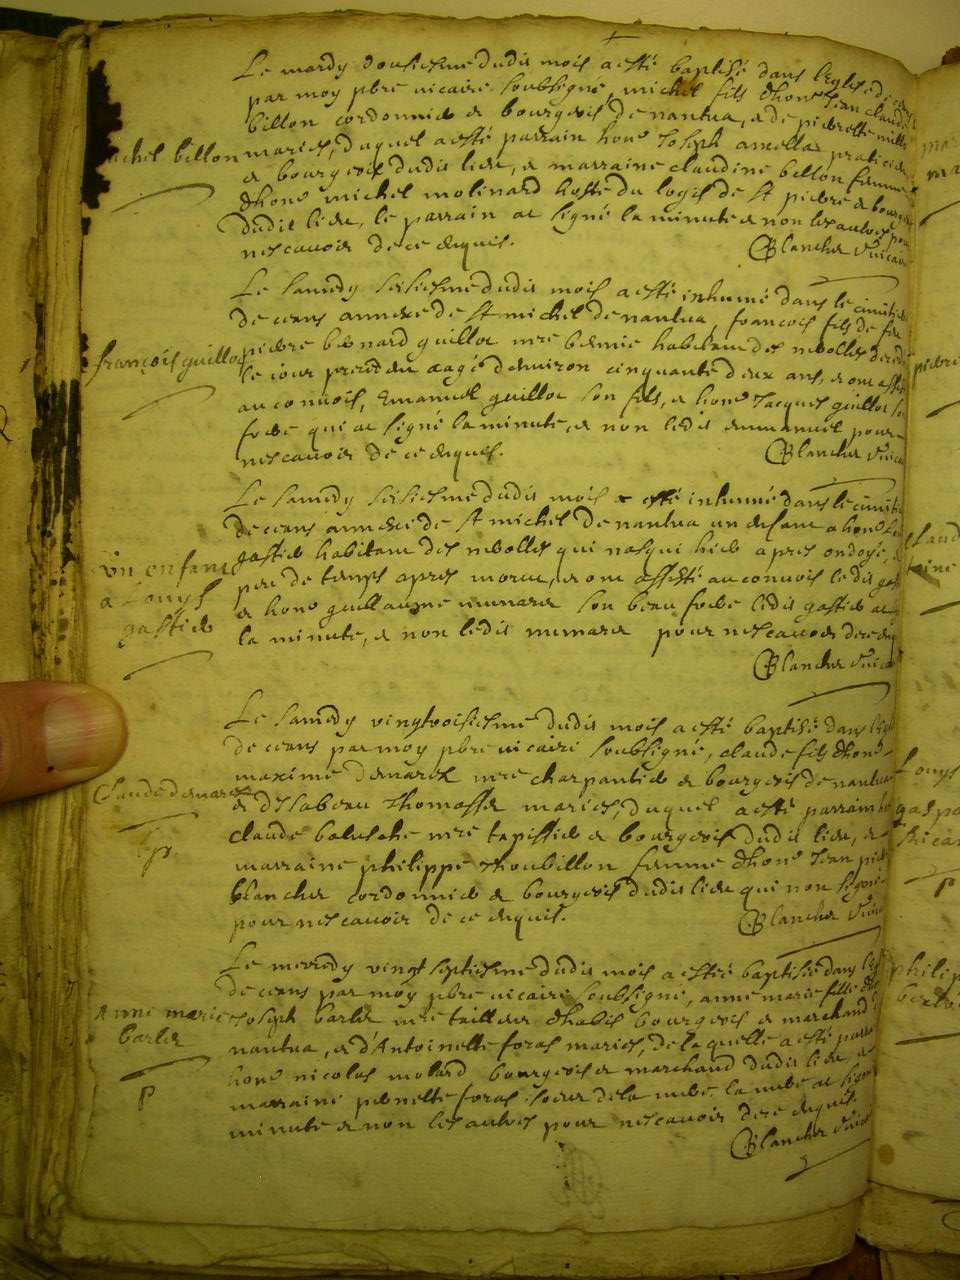 Le mardy dousiesme dudit mois a esté baptisé dans l'eglise de ceans
par moy pbre vicaire soubsigné, michel fils dhon^e Jean claude
billon cordonnier & bourgeois de nantua, & de pierrette
michel billon
mariés, duquel a esté parrain hon^e Joseph amellas praticien
& bourgeois dudit lieu, & marraine claudine billon femme
dhon^e michel molinard hoste du logis de St pierre & bourgeois
dudit lieu, le parrain at signé la minute & non les autres pour
nescavoir de ce enquis.
Blanchet Vicaire
Le samedy sesiesme dudit mois a esté inhumé dans le cimitiere
de ceans annexe de St michel de nantua, francois fils de feu
françois guilloc
pierre bernard guilloc habitant des neolles decedé
le jour precedent aagé denviron cinquante deux ans, & ont assisté
au convois, Emanuel guilloc son fils, & hon^e Jacques guilloc son
frere qui at signé la minute, & non ledit emmanuel pour
nescavoir de ce enquis.
Blanchet Vicaire
Le samedy sesiesme dudit mois a esté inhumé dans le cimitiere
de ceans annexe de St michel de nantua un enfant a hon^e
un enfant
a Louys
gastier
gastier habitant des neolles qui nasquit hier apres ondoyé, &
peu de temps apres mort, & ont assisté au convois ledit gastier
& hon^e guillaume munarer son beau frere ledit gastier at
la minute, & non ledit munarer pour nescavoir de ce enquis
Blanchet Vicaire
Le samedy vingtroisiesme dudit mois a esté baptisé dans l'eglise
de ceans par moy pbre vicaire soubsigné, claude fils dhon^e
maxime demarex mre charpantier & bourgeois de nantua
Claude demarex
& dysabeau Thomasset mariés, duquel a esté parrain
p.
claude baluche mre tapissier & bourgeois dudit lieu, &
marraine philippe Thoubillon femme dhon^e Jean
blanchet cordonnier & bourgeois dudit lieu qui non signé
pour nescavoir de ce enquis.
Blanchet Vicaire
Le mecredy vingt septiesme dudit mois a esté baptisée dans
de ceans par moy pbre vicaire soubsigné, anne marie fille
Anne marie
barlet
p
Joseph barlet mre tailleur dhabis bourgeois & marchand
nantua, & d'Antoinette foras mariés, de laquelle a esté parrain
hon^e nicolas molard bourgeois & marchand dudit lieu, &
marraine pernette foras soeur de la mere, la mere at signé
minute & non les autres pour nescavoir de ce enquis.
Blanchet Vicaire